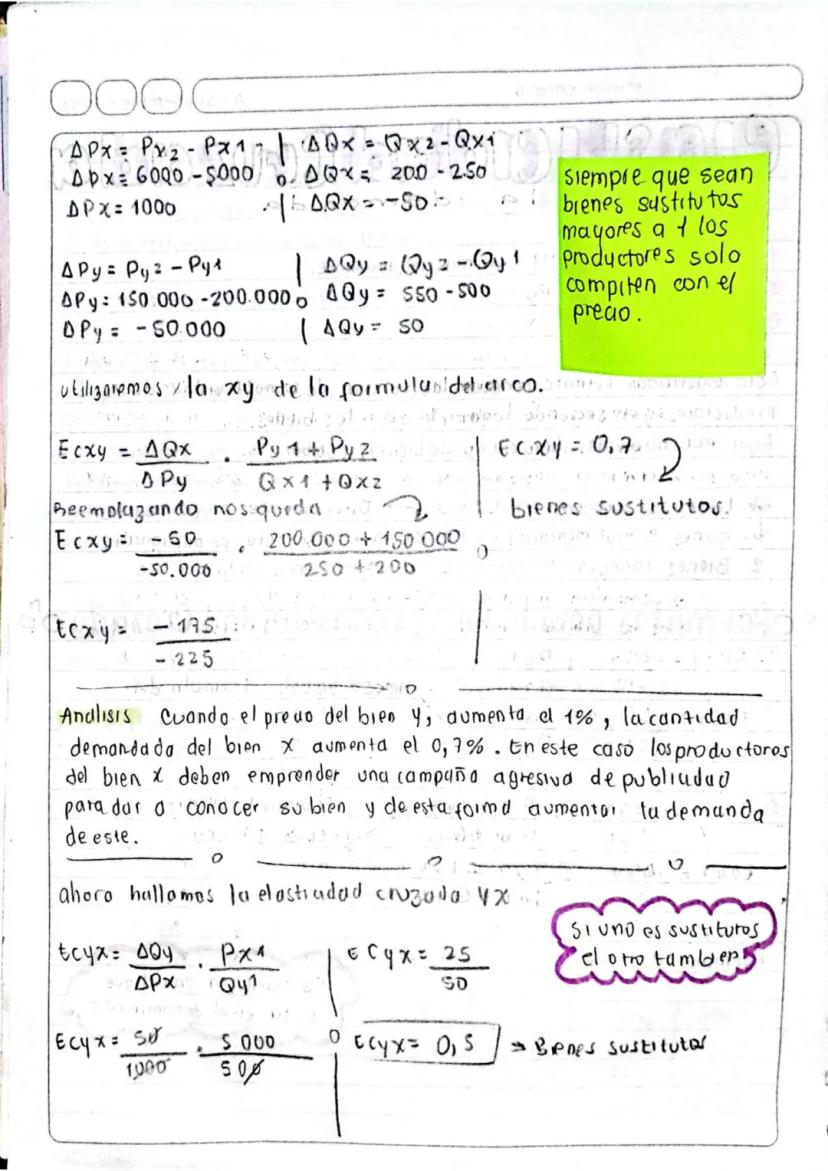 ΔPx = Px2 - Px1 | ΔQx = Qx2 - Qx1
Δpx = 6000 - 5000 ΔQx = 200 - 250
ΔPx = 1000 | ΔQx = -50
siempre que sean
bienes sustitutos
mayores a 1 los
productores solo
compiten con el
precio.
ΔPy = Py2 - Py1 | ΔQy = Qy2 - Qy1
ΔPy = 150.000 - 200.000 ΔQy = 550 - 500
ΔPy = -50.000 | ΔQy = 50
utilizaremos la xy de la formula del arco.
Ecxy = ΔQx/ΔPy . Py1 + Py2/Qx1 + Qx2
Reemplazando nos queda
Ecxy = -50/-50.000 . 200.000 + 150 000/250 + 200
Ecxy = -175/-225
Ecxy = 0,7
bienes sustitutos.
Analisis Cuando el precio del bien y, aumenta el 1%, la cantidad
demandada del bien x aumenta el 0,7%. En este caso los productores
del bien x deben emprender una campaña agresiva de publicidad
para dar a conocer su bien y de esta forma aumentar la demanda
de este.
ahora hallamos la elasticidad cruzada yx
Si uno es sustitutos
el otro tambien
Ecyx = ΔQy/ΔPx . Px1/Qy1
Ecyx = 50/1000 . 5 000/500
Ecyx = 25/50
Ecyx = 0,5 ⇒ Bienes sustitutos